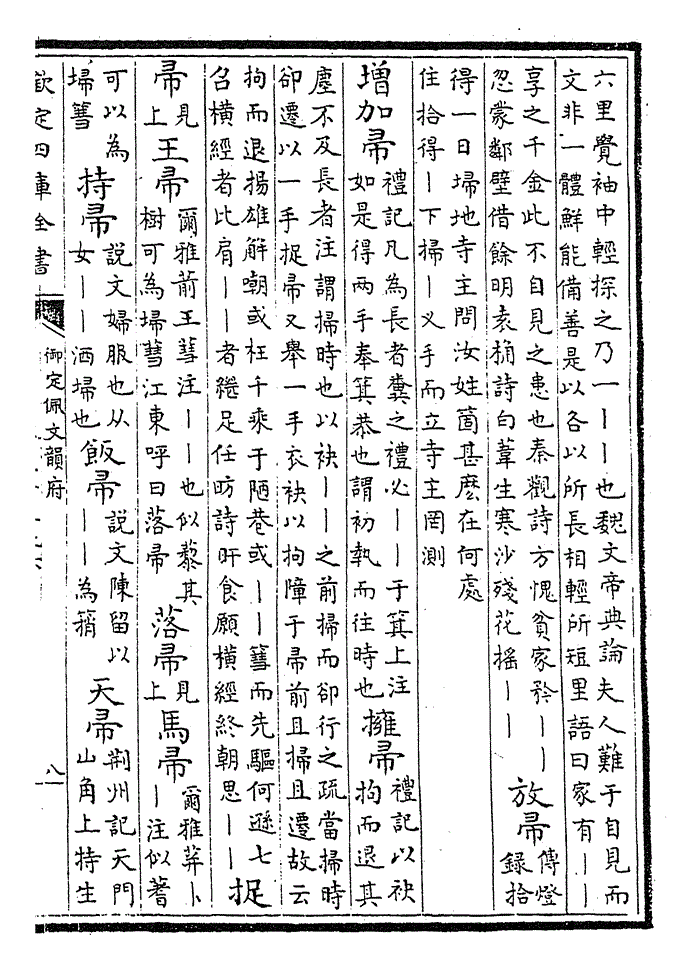 六里覺袖中輕探之乃一丨丨也魏文帝典論夫人難于自見而
文非一體鮮能備善是以各以所長相輕所短里語曰家有丨丨
享之千金此不自見之患也秦觀詩方愧貧家矜丨丨
忽蒙鄰壁借餘明袁桷詩白葦生寒沙殘花搖丨丨
放帚
傳燈
錄拾
得一日埽地寺主問汝姓箇甚麽在何處
住拾得丨下掃丨义手而立寺主罔測
增加帚
禮記凡為長者糞之禮必丨丨于箕上注
如是得兩手奉箕恭也謂初執而往時也
擁帚
禮記以袂
拘而退其
塵不及長者注謂掃時也以袂丨丨之前掃而卻行之疏當掃時
卻遷以一手捉帚又舉一手衣袂以拘障于帚前且掃且遷故云
拘而退揚雄解嘲或枉千乘于陋巷或丨丨篲而先驅何遜七
召橫經者比肩丨丨者繼足任昉詩旰食願橫經終朝思丨丨
捉
帚
見
上
王帚
爾雅葥王彗注丨丨也似藜其
樹可為埽彗江東呼曰落帚
落帚
見
上
馬帚
爾雅荓丨
丨注似蓍
可以為
埽篲
持帚
說文婦服也从
女丨丨洒埽也
飯帚
說文陳留以
丨丨為䈰
天帚
荆州記天門
山角上特生
欽定四庫全書
御定佩文韻府
八